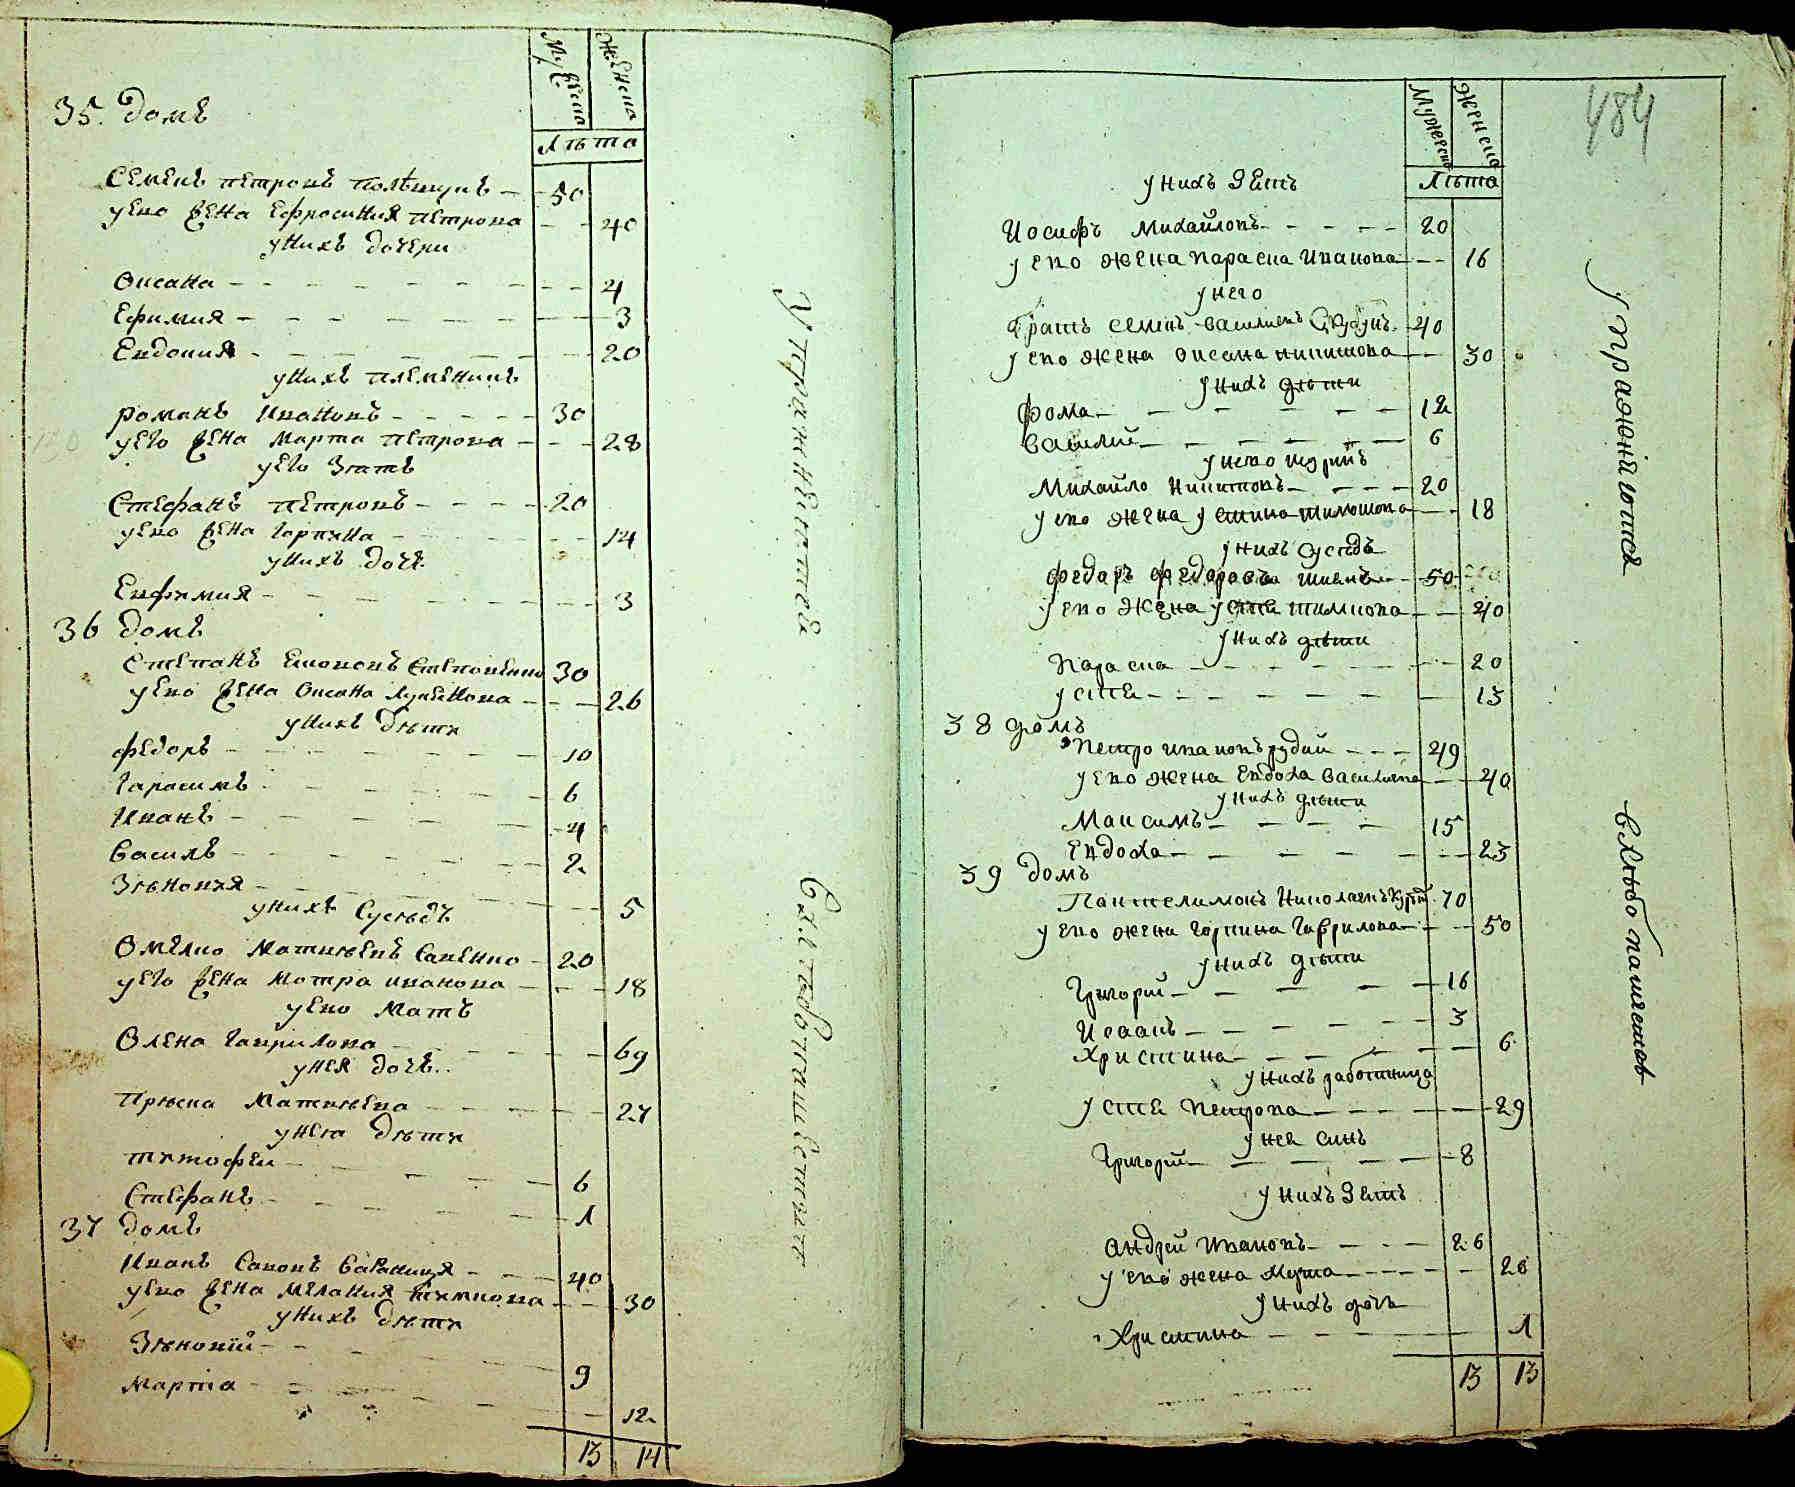 Мужеска
Женска
Лѣта
35. домъ
Семенъ петровъ полѣщукъ 50
у его жена Ефросиния петрова 40
у нихъ дочери
Оксана 4
Ефимия 3
Евдокия 20
у нихъ племеникъ
романъ Ивановъ 30
у его жена Марта петрова 28
у его Зять
Стефанъ петровъ 20
у его жена горпина 14
у нихъ дочъ
Енфимия 3
36 домъ
Степанъ 30
у его жена Оксана 26
у нихъ дѣти
федоръ 10
гарасимъ 6
Иванъ 4
василъ 2
Зѣновия 5
у нихъ Сусѣдъ
Омелко Матвѣевъ Савенко 20
у его жена Мотра иванова 18
у его Мать
Олена гаврилова 69
у нея дочъ
Прѣска Матвѣева 27
у нея дѣти
тимофей 6
Стефанъ 1
37 домъ
Иванъ Савовъ 40
у его жена мелания 30
у нихъ дѣти
Зѣновий 9
марта 12
13 14
Упражняются
в хлѣбопашествѣ
484
Мужеска
Женска
Лѣта
у нихъ Зять
Иосифъ Михайловъ 20
у его жена параска Иванова 16
у него
братъ семенъ васильевъ 40
у его жена оксана никитова 30
у нихъ дѣти
фома 12
василий 6
у него шуринъ
Михайло Никитовъ 20
у его жена устина 18
у нихъ сусѣдъ
федаръ федаровъ 50
у его жена устя 40
у нихъ дѣти
Параска 20
устя 13
38 домъ
Петро ивановъ рудий 49
у его жена Евдоха василевна 40
у нихъ дѣти
Максимъ 15
Евдоха 23
39 домъ
Пантелимонъ Николаевъ 70
у его жена горпина гаврилова 50
у нихъ дѣти
григорий 16
Исаакъ 3
Христина 6
у нихъ работница
устя петрова 29
у нея синъ
григорий 8
у нихъ Зять
андрей Ивановъ 26
у его жена Марта 20
у нихъ дочь
Христина 1
13 13
упражняются
в хлѣбопашествѣ